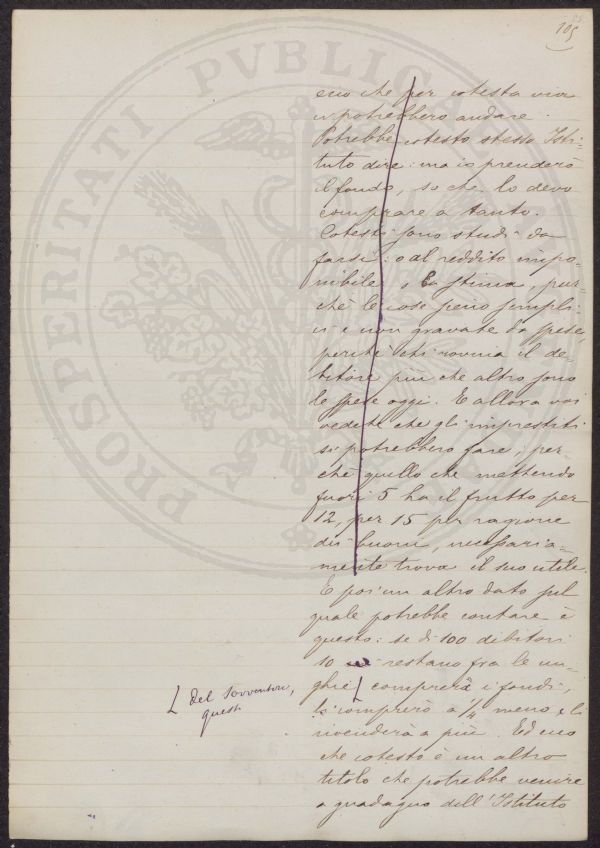 105
ecco che per cotesta via
si potrebbero andare.
Potrebbe cotesto stesso Isti-
tuto dire: ma io prenderò
il fondo, so che lo devo
comprare a tanto.
Cotesti sono studi da
farsi: o al reddito impo-
nibile, o a stima, pur-
chè le cose sieno sempli-
ci e non gravate da spese,
perchè chi rovina il de-
bitore più che altro sono
le spese oggi. E allora voi
vedete che gli imprestiti
si potrebbero fare, per-
chè quello che mettendo
fuori 5 ha il frutto per
12, per 15 per ragione
di buoni, necessaria-
mente trova il suo utile.
E poi un altro dato sul
quale potrebbe contare è
questo: se di 100 debitori
10 restano fra le un-
ghie comprerà i fondi,
li comprerà a 1/4 meno e li
rivenderà a più. Ed ecco
che cotesto è un altro
titolo che potrebbe venire
a guadagno dell'Istituto
del sovventore,
questi
PROSPERITATI PVBLICAE